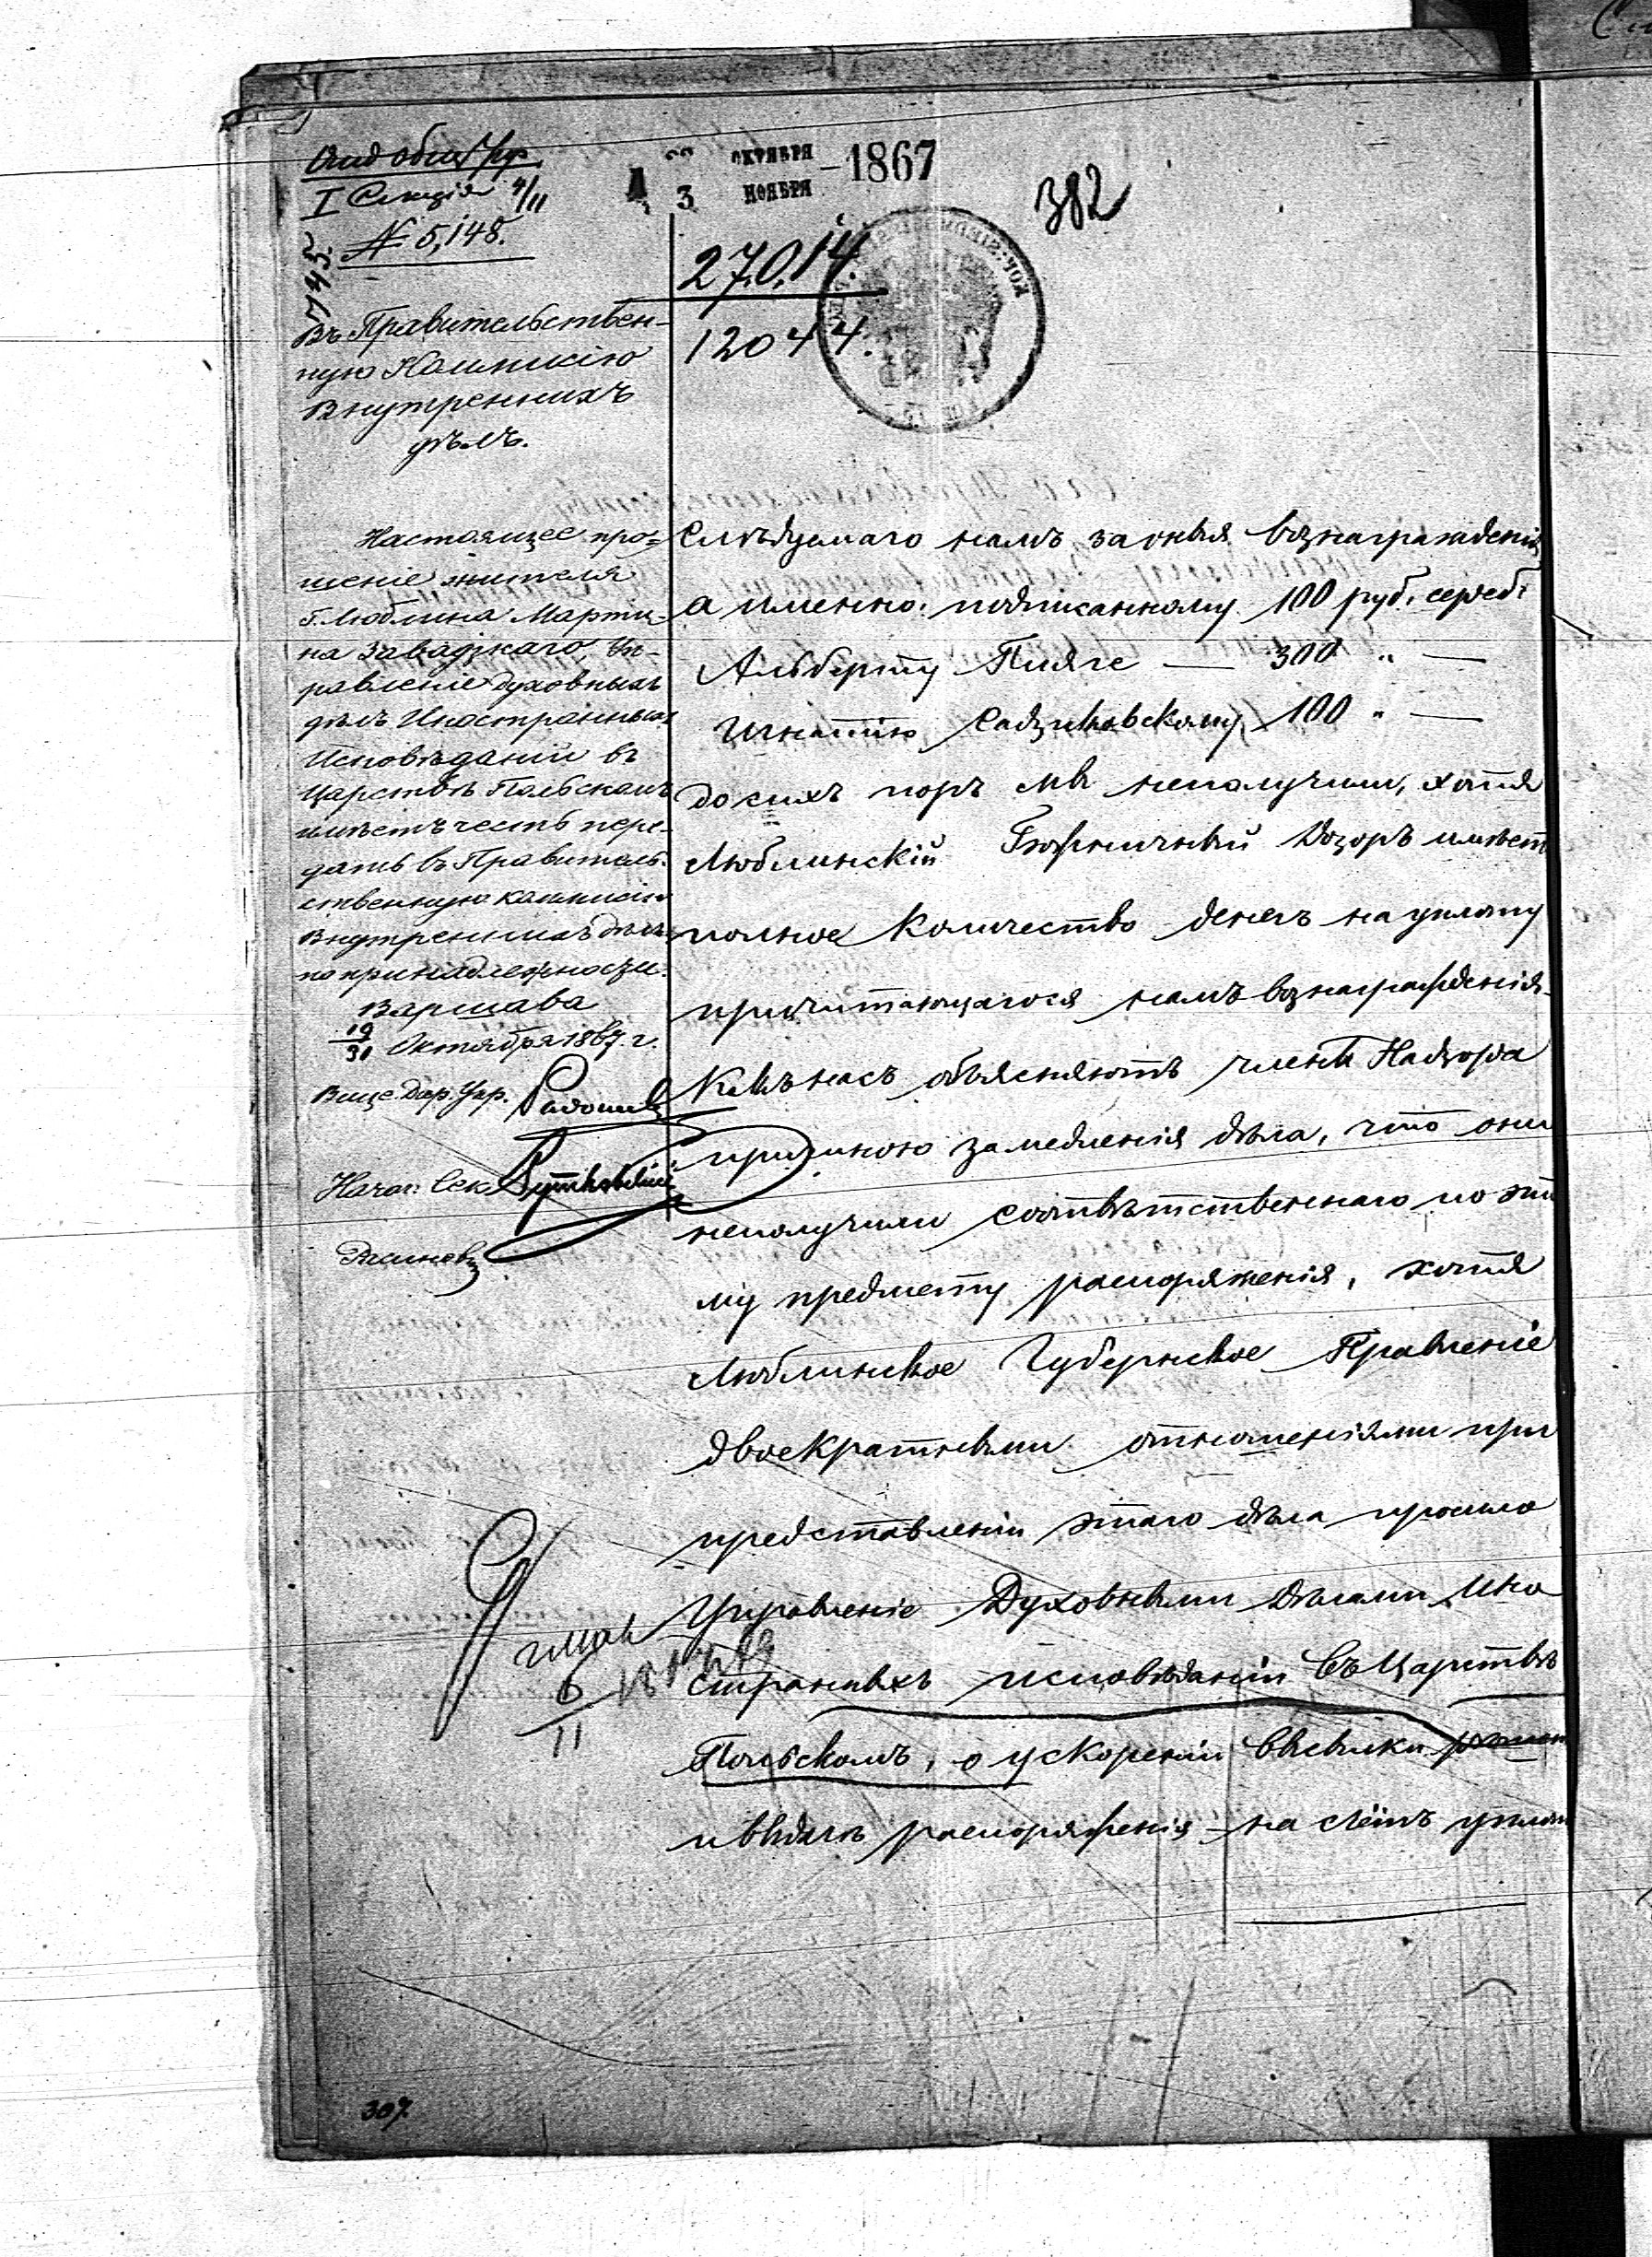 I Секція 4/11
№ 5,148.
745.
22 ОКТЯБРЯ
3 НОЯБРЯ
1867
382
27.014.
12044.
Въ Правительствен-
ную Коммисію
Внутреннихъ
дѣлъ.
Настоящее про-
шеніе жителя
г. Люблина Марти-
на Завадзкаго, Уп-
равленіе Духовныхъ
дѣлъ Иностранныхъ
Исповѣданій въ
Царствѣ Польскомъ
имѣетъ честь пере-
дать въ Правитель-
ственную Коммисію
Внутреннихъ дѣлъ
по принадлежности.
Варшава
19/31 Октября 1867 г.
Вице-Дир. Упр.
Начал: Сек.
Слѣдуемаго намъ за оныя вознагражденія
а именно: подписанному 100 руб. сереб.
Альберту Пляге — 300 " —
Игнатію 100 " —
до сихъ поръ мы неполучили, хотя
Люблинскій Божничный Дозоръ имѣет
полное количество денегъ на уплату
причитающагося намъ вознагражденія.
Какъ насъ объясняютъ члены Надзора
причиною замедленія дѣла, что они
неполучили соотвѣтственнаго по это
му предмету распоряженія, хотя
Люблинское Губернское Правленіе
двоекратными отношеніями при
представленіи этаго дѣла просило
Управленіе Духовными Дѣлами Ино
странныхъ исповѣданій въ Царствѣ
Польскомъ, о ускореніи высылки
и выдачѣ распоряженія на счетъ уплат
6/11
307